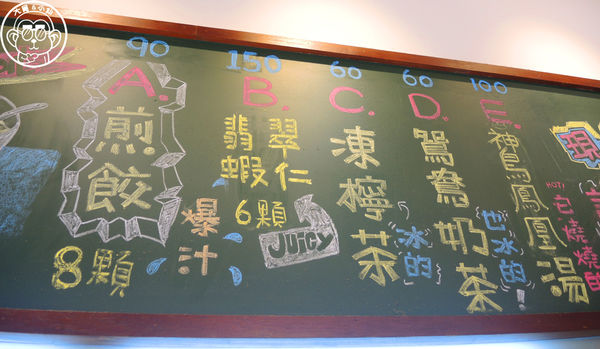 90
A.
煎餃
8顆
150
B.
翡翠
蝦仁
6顆
爆汁
JUICY
60
C.
凍檸茶
冰的
60
D.
鴛鴦奶茶
也冰的!
100
E.
神鳥鳳凰湯
HOT!
現